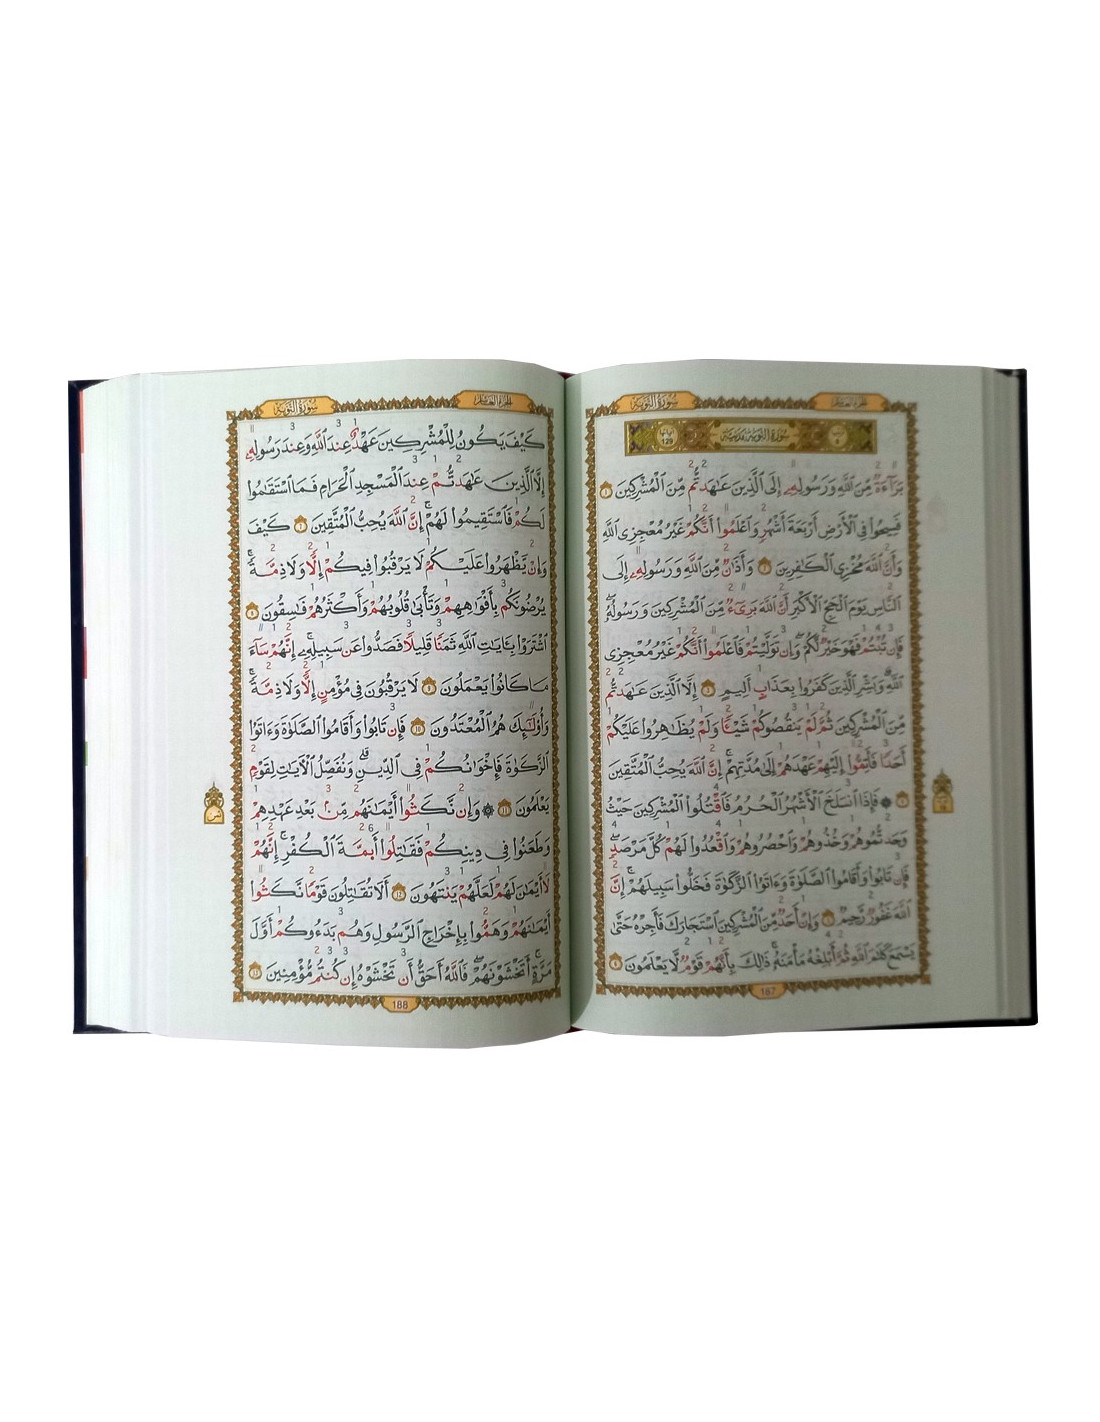 سورة التوبة
الجزء العاشر
سورة التوبة مدنية
آياتها 129
بَرَآءَةٌ مِّنَ ٱللَّهِ وَرَسُولِهِۦٓ إِلَى ٱلَّذِينَ عَٰهَدتُّم مِّنَ ٱلْمُشْرِكِينَ ١
فَسِيحُوا۟ فِى ٱلْأَرْضِ أَرْبَعَةَ أَشْهُرٍ وَٱعْلَمُوٓا۟ أَنَّكُمْ غَيْرُ مُعْجِزِى ٱللَّهِ
وَأَنَّ ٱللَّهَ مُخْزِى ٱلْكَٰفِرِينَ ٢ وَأَذَٰنٌ مِّنَ ٱللَّهِ وَرَسُولِهِۦٓ إِلَى
ٱلنَّاسِ يَوْمَ ٱلْحَجِّ ٱلْأَكْبَرِ أَنَّ ٱللَّهَ بَرِىٓءٌ مِّنَ ٱلْمُشْرِكِينَ وَرَسُولُهُۥ
فَإِن تُبْتُمْ فَهُوَ خَيْرٌ لَّكُمْ وَإِن تَوَلَّيْتُمْ فَٱعْلَمُوٓا۟ أَنَّكُمْ غَيْرُ مُعْجِزِى
ٱللَّهِ وَبَشِّرِ ٱلَّذِينَ كَفَرُوا۟ بِعَذَابٍ أَلِيمٍ ٣ إِلَّا ٱلَّذِينَ عَٰهَدتُّم
مِّنَ ٱلْمُشْرِكِينَ ثُمَّ لَمْ يَنقُصُوكُمْ شَيْـًٔا وَلَمْ يُظَٰهِرُوا۟ عَلَيْكُمْ
أَحَدًا فَأَتِمُّوٓا۟ إِلَيْهِمْ عَهْدَهُمْ إِلَىٰ مُدَّتِهِمْ إِنَّ ٱللَّهَ يُحِبُّ ٱلْمُتَّقِينَ
٤ ۞ فَإِذَا ٱنسَلَخَ ٱلْأَشْهُرُ ٱلْحُرُمُ فَٱقْتُلُوا۟ ٱلْمُشْرِكِينَ حَيْثُ
وَجَدتُّمُوهُمْ وَخُذُوهُمْ وَٱحْصُرُوهُمْ وَٱقْعُدُوا۟ لَهُمْ كُلَّ مَرْصَدٍ
فَإِن تَابُوا۟ وَأَقَامُوا۟ ٱلصَّلَوٰةَ وَءَاتَوُا۟ ٱلزَّكَوٰةَ فَخَلُّوا۟ سَبِيلَهُمْ إِنَّ
ٱللَّهَ غَفُورٌ رَّحِيمٌ ٥ وَإِنْ أَحَدٌ مِّنَ ٱلْمُشْرِكِينَ ٱسْتَجَارَكَ فَأَجِرْهُ حَتَّىٰ
يَسْمَعَ كَلَٰمَ ٱللَّهِ ثُمَّ أَبْلِغْهُ مَأْمَنَهُۥ ذَٰلِكَ بِأَنَّهُمْ قَوْمٌ لَّا يَعْلَمُونَ ٦
187
سورة التوبة
الجزء العاشر
كَيْفَ يَكُونُ لِلْمُشْرِكِينَ عَهْدٌ عِندَ ٱللَّهِ وَعِندَ رَسُولِهِۦٓ
إِلَّا ٱلَّذِينَ عَٰهَدتُّمْ عِندَ ٱلْمَسْجِدِ ٱلْحَرَامِ فَمَا ٱسْتَقَٰمُوا۟
لَكُمْ فَٱسْتَقِيمُوا۟ لَهُمْ إِنَّ ٱللَّهَ يُحِبُّ ٱلْمُتَّقِينَ ٧ كَيْفَ
وَإِن يَظْهَرُوا۟ عَلَيْكُمْ لَا يَرْقُبُوا۟ فِيكُمْ إِلًّا وَلَا ذِمَّةً
يُرْضُونَكُم بِأَفْوَٰهِهِمْ وَتَأْبَىٰ قُلُوبُهُمْ وَأَكْثَرُهُمْ فَٰسِقُونَ ٨
ٱشْتَرَوْا۟ بِـَٔايَٰتِ ٱللَّهِ ثَمَنًا قَلِيلًا فَصَدُّوا۟ عَن سَبِيلِهِۦٓ إِنَّهُمْ سَآءَ
مَا كَانُوا۟ يَعْمَلُونَ ٩ لَا يَرْقُبُونَ فِى مُؤْمِنٍ إِلًّا وَلَا ذِمَّةً
وَأُو۟لَٰٓئِكَ هُمُ ٱلْمُعْتَدُونَ ١٠ فَإِن تَابُوا۟ وَأَقَامُوا۟ ٱلصَّلَوٰةَ وَءَاتَوُا۟
ٱلزَّكَوٰةَ فَإِخْوَٰنُكُمْ فِى ٱلدِّينِ وَنُفَصِّلُ ٱلْـَٔايَٰتِ لِقَوْمٍ
يَعْلَمُونَ ١١ ۞ وَإِن نَّكَثُوٓا۟ أَيْمَٰنَهُم مِّنۢ بَعْدِ عَهْدِهِمْ
وَطَعَنُوا۟ فِى دِينِكُمْ فَقَٰتِلُوٓا۟ أَئِمَّةَ ٱلْكُفْرِ إِنَّهُمْ
لَآ أَيْمَٰنَ لَهُمْ لَعَلَّهُمْ يَنتَهُونَ ١٢ أَلَا تُقَٰتِلُونَ قَوْمًا نَّكَثُوٓا۟
أَيْمَٰنَهُمْ وَهَمُّوا۟ بِإِخْرَاجِ ٱلرَّسُولِ وَهُم بَدَءُوكُمْ أَوَّلَ
مَرَّةٍ أَتَخْشَوْنَهُمْ فَٱللَّهُ أَحَقُّ أَن تَخْشَوْهُ إِن كُنتُم مُّؤْمِنِينَ ١٣
188